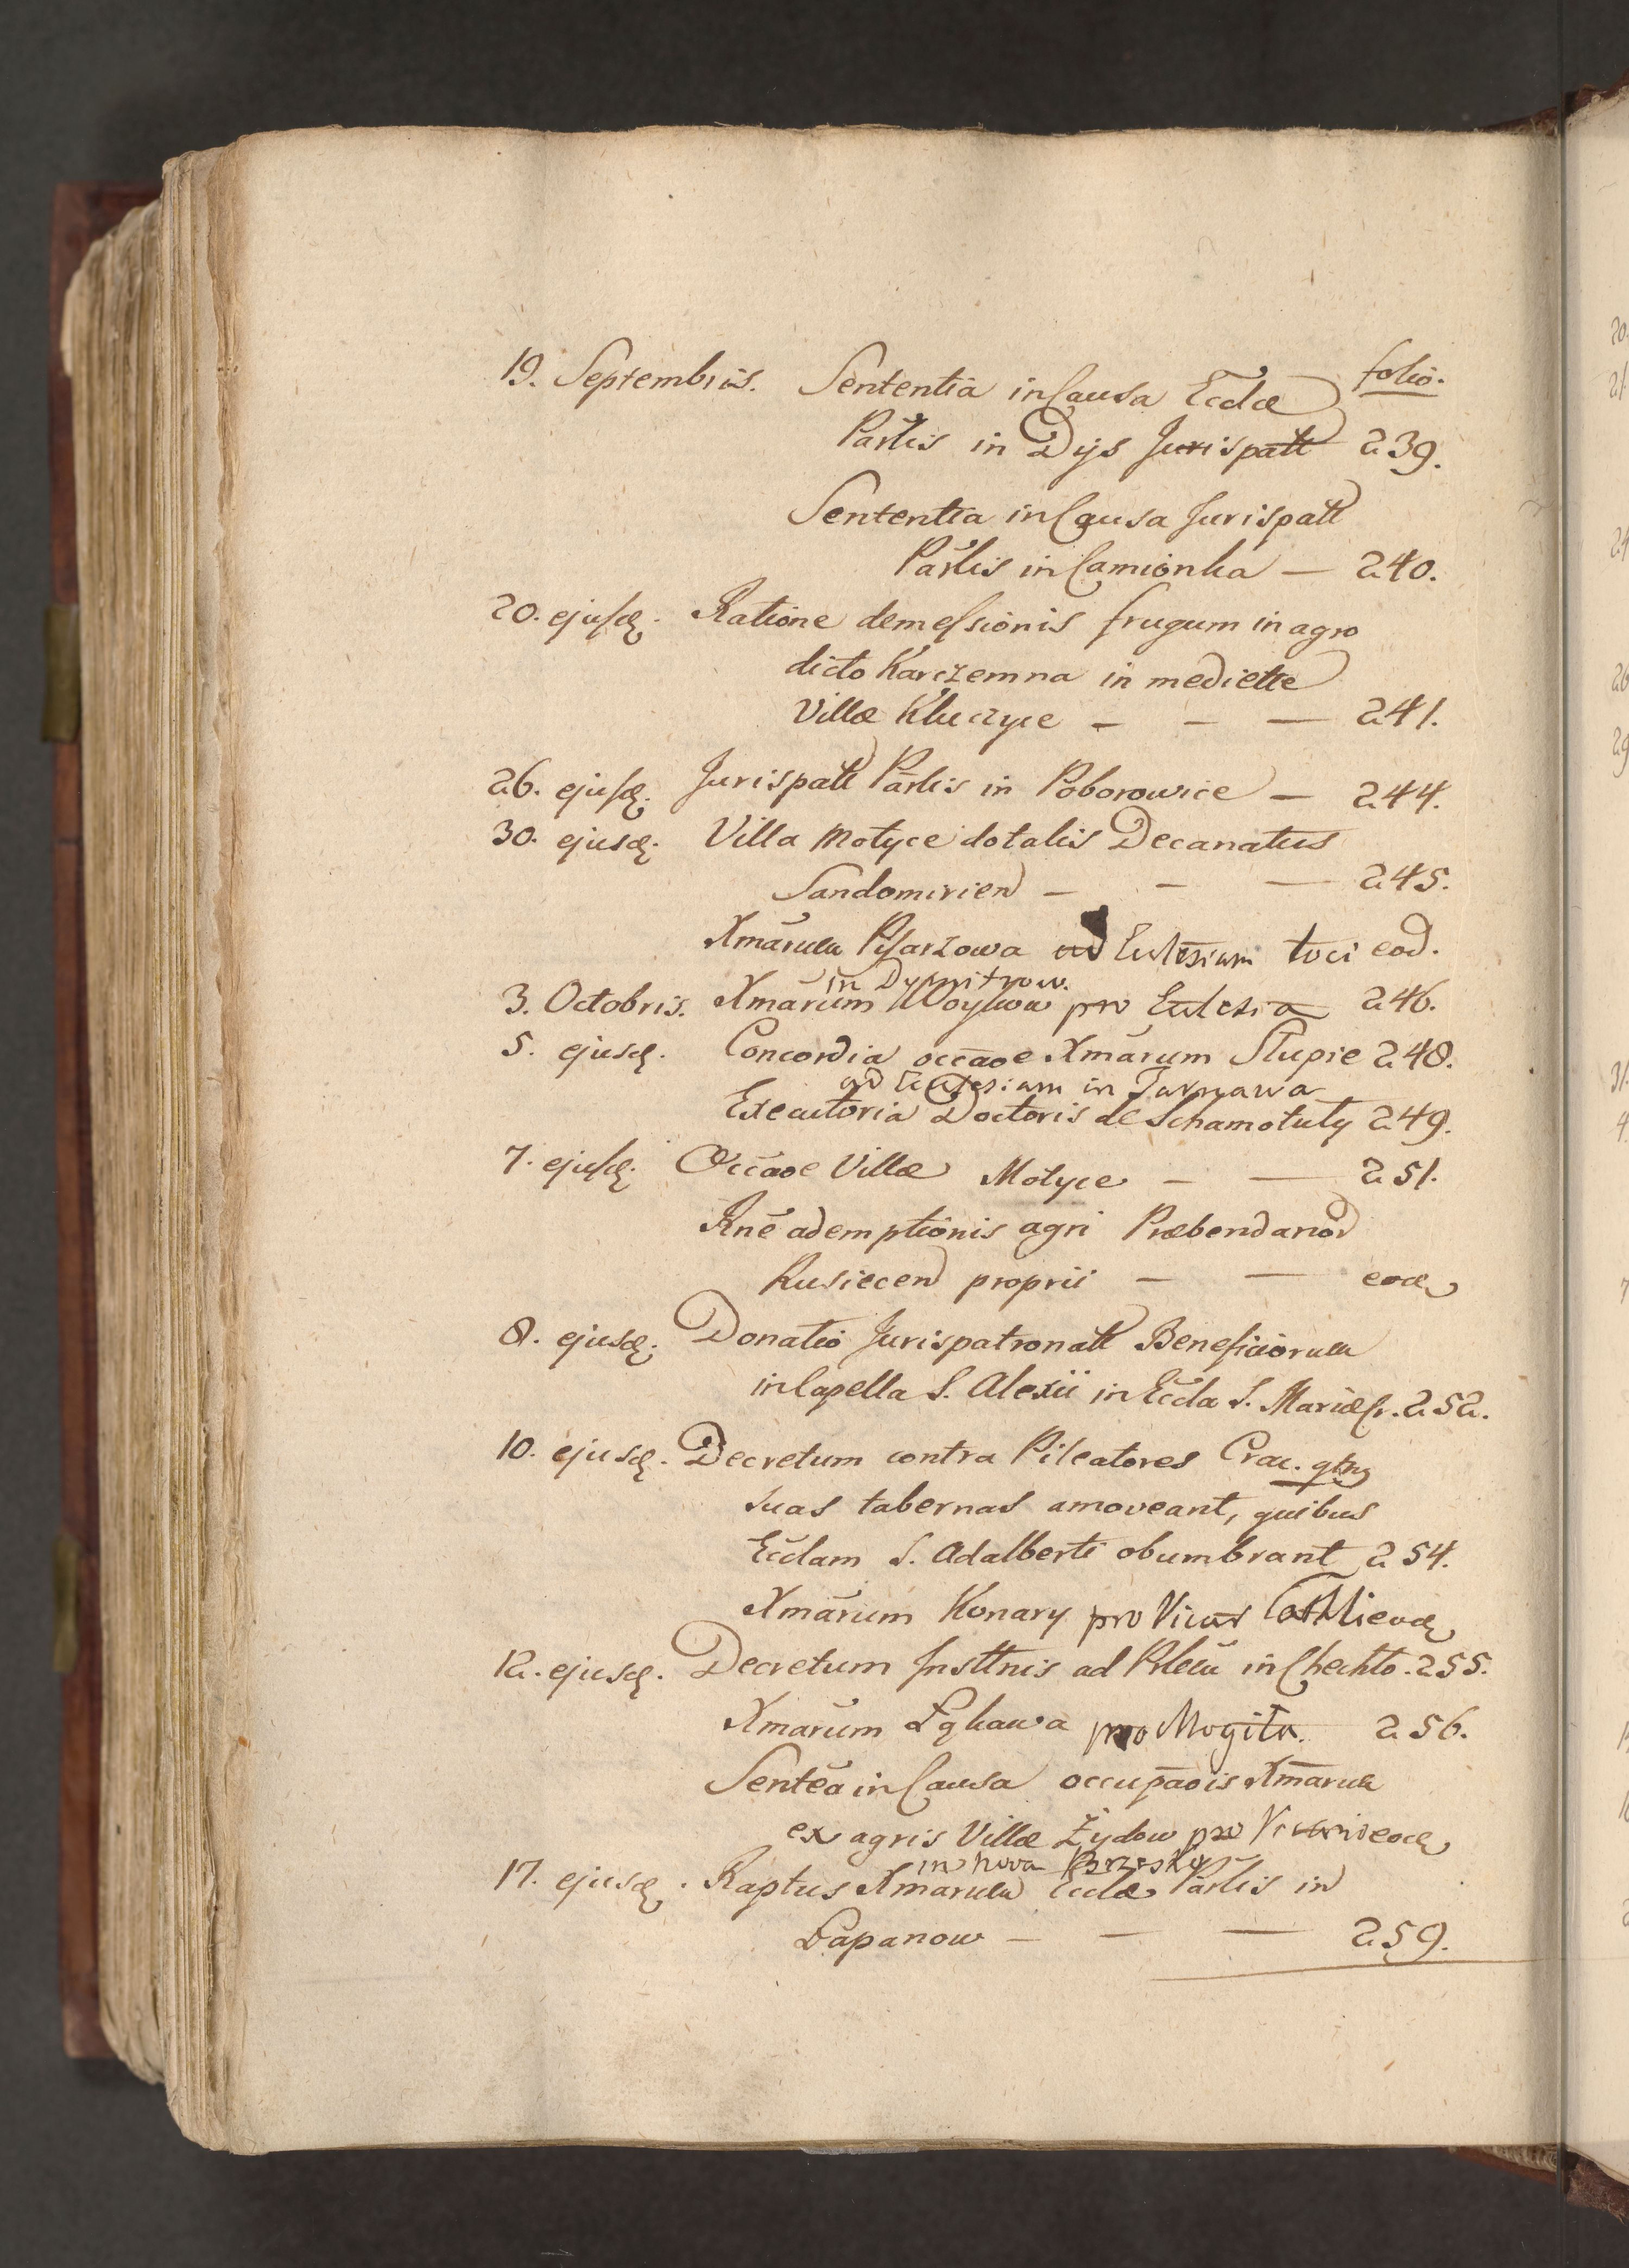 folio.
19. Septembris. Sententia in Causa Eccłae
Parlis in Dys Jurispatt 239.
Sententia in Causa Jurispatt
Parlis in Camionka — 240.
20. ejusd. Ratione demessionis frugum in agro
dicto Karczemna in mediette
Villæ Kluczyce — — — 241.
26. ejusd. Jurispatt Parlis in Poborowice — 244.
30. ejusd. Villa Motyce dotalis Decanatus
Sandomirien — — — 245.
Xmarum Pisarzowa ad Eclesiam loci eod.
in Dymitrow.
3. Octobris. Xmarum Woyków pro Eclesia 246.
5. ejusd. Concordia occaoe Xmarum Slupie 248.
ad Ecclesiam in Tarnawa
Executoria Doctoris de Schamotuly 249.
7. ejusd. Occaoe Villæ Motyce — — 251.
Rne ademptionis agri Præbendariod
Rusiecen proprii — — eod
8. ejusd. Donatio Jurispatronatt Beneficiorum
in Capella S. Alexii in Eccla S. Mariæ Cr. 252.
10. ejusd. Decretum contra Pileatores Crac. qtng
suas tabernas amoveant, quibus
Ecclam S. Adalberti obumbrant 254.
Xmarum Konary pro Vicar eod
12. ejusd. Decretum Insttnis ad Plebū in Chechło. 255.
Xmarum Łękawa pro Mogiła. 256.
Sentēa in Causa occupaōis Xmarum
ex agris Villæ Żydow pro Vicario eod
in nova Brzesko
17. ejusd. Raptus Xmarum Ecclæ Parlis in
Łapanow — — — 259.